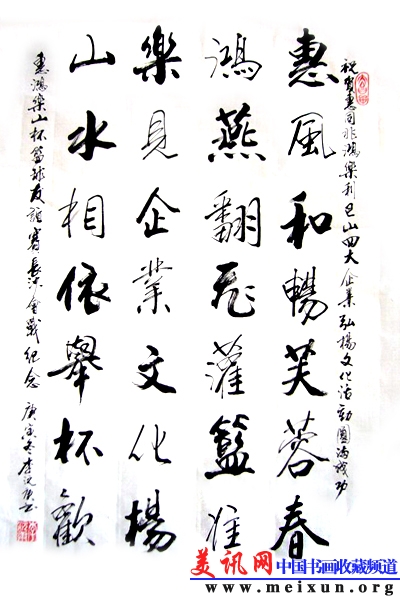 祝賀惠同非鴻樂利巴山四大企業弘楊文化活動圓滿成功
惠風和暢芙蓉春
鴻燕翻飛灌籃准
樂見企業文化楊
山水相依舉杯歡
惠鴻樂山杯籃球友誼賽長沙會戰紀念 庚寅冬李
美讯网 中国书画收藏频道
www.meixun.org